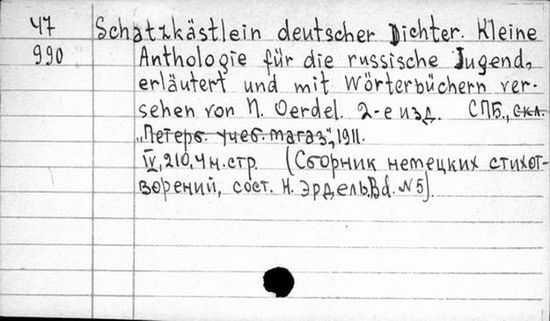 47 Schatzkästlein deutscher Dichter. Kleine
990 Anthologie für die russische Jugend,
erläutert und mit Wörterbüchern ver-
sehen von N. Oerdel. 2-е изд. СПБ., скл.
„Петерб. учеб. магаз", 1911.
IV, 210, 4 н. стр. (Сборник немецких стихот-
ворений, сост. Н. Эрдель, Bd. N 5).